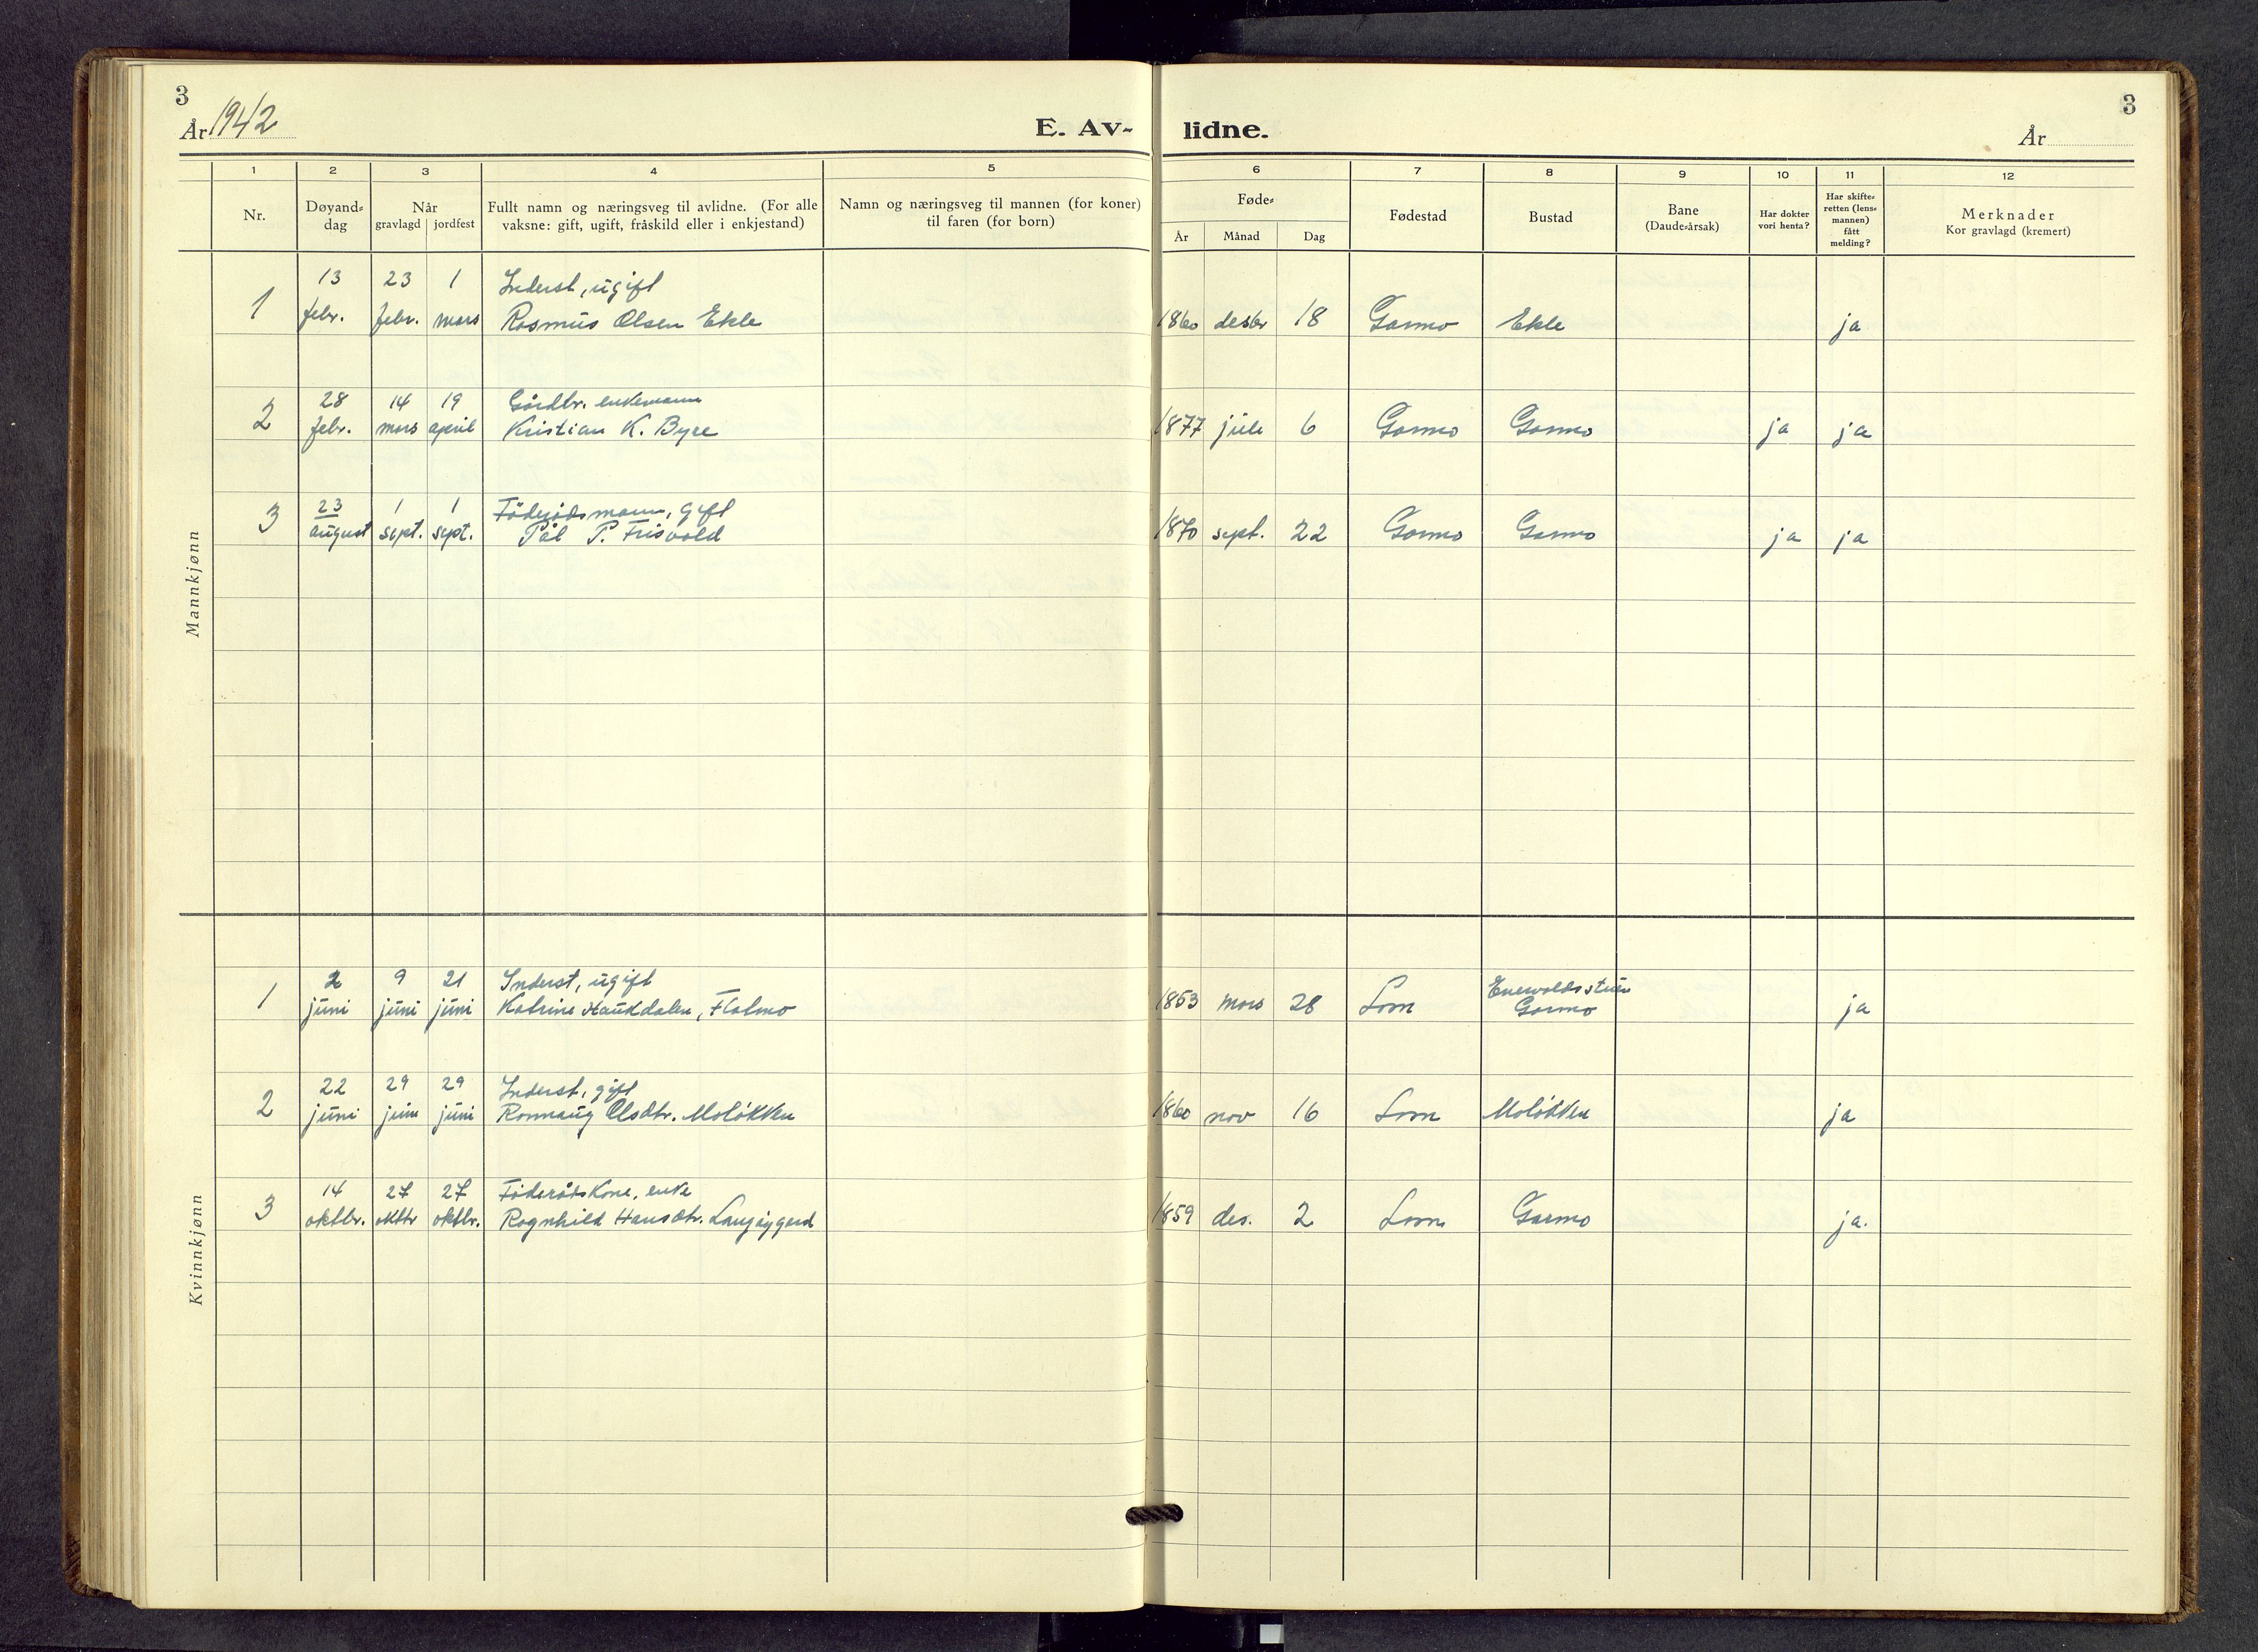 3
År 1942
E. Av-
lidne.
3
År
1
2
3
4
5
6
7
8
9
10
11
12
Nr.
Døyand-
dag
Når
gravlagd jordfest
Fullt namn og næringsveg til avlidne. (For alle
vaksne: gift, ugift, fråskild eller i enkjestand)
Namn og næringsveg til mannen (for koner)
til faren (for born)
Føde-
År Månad Dag
Fødestad
Bustad
Bane
(Daude-årsak)
Har dokter
vori henta?
Har skifte-
retten (lens-
mannen)
fått
melding?
Merknader
Kor gravlagd (kremert)
Mannkjønn
13 23 1 Inderst, ugift
1 febr. febr. mars Rasmus Olsen Ekle 1860 desbr 18 Garmo Ekle ja
28 14 19 Gårdbr. enkemann
2 febr. mars april Kristian K. Byre 1877 juli 6 Garmo Garmo ja ja
23 1 1 Föderådsmann, gift
3 august sept. sept. Pål P. Frisvold 1870 sept. 22 Garmo Garmo ja ja
Kvinnkjønn
2 9 21 Inderst, ugift Enevoldsstuen
1 juni juni juni Katrine Haukdalen, Flatmo 1853 mars 28 Lom Garmo ja
22 29 29 Inderst, gift
2 juni juni juni Ronnaug Olsdtr. Moløkken 1860 nov 16 Lom Moløkken ja
14 27 27 Föderådskone, enke
3 oktbr. oktbr oktbr. Ragnhild Hansdtr. 1859 des. 2 Lom Garmo ja.